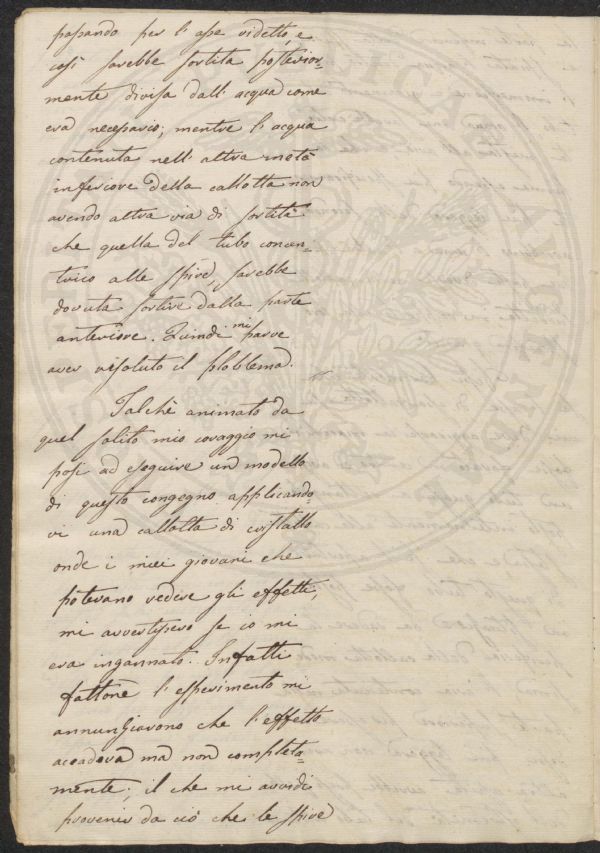 passando per l'asse vidette, e
così sarebbe sortita posterior-
mente divisa dall'acqua come
era necessario; mentre l'acqua
contenuta nell'altra metà
inferiore della callotta non
avendo altra via di sortità
che quella del tubo concen-
trico alle spire, sarebbe
dovuta sortire dalla parte
anteriore. Quindi mi parve
aver risoluto il ploblema.
Talchè animato da
quel solito mio coraggio mi
posi ad eseguire un modello
di questo congegno applicando-
vi una callotta di cristallo
onde i miei giovani che
potevano vedere gli effetti,
mi avvertissero se io mi
era ingannato. Infatti
fattone l'esperimento mi
annunziarono che l'effetto
accadeva ma non completa-
mente; il che mi avvidi
provenir da ciò che le spire